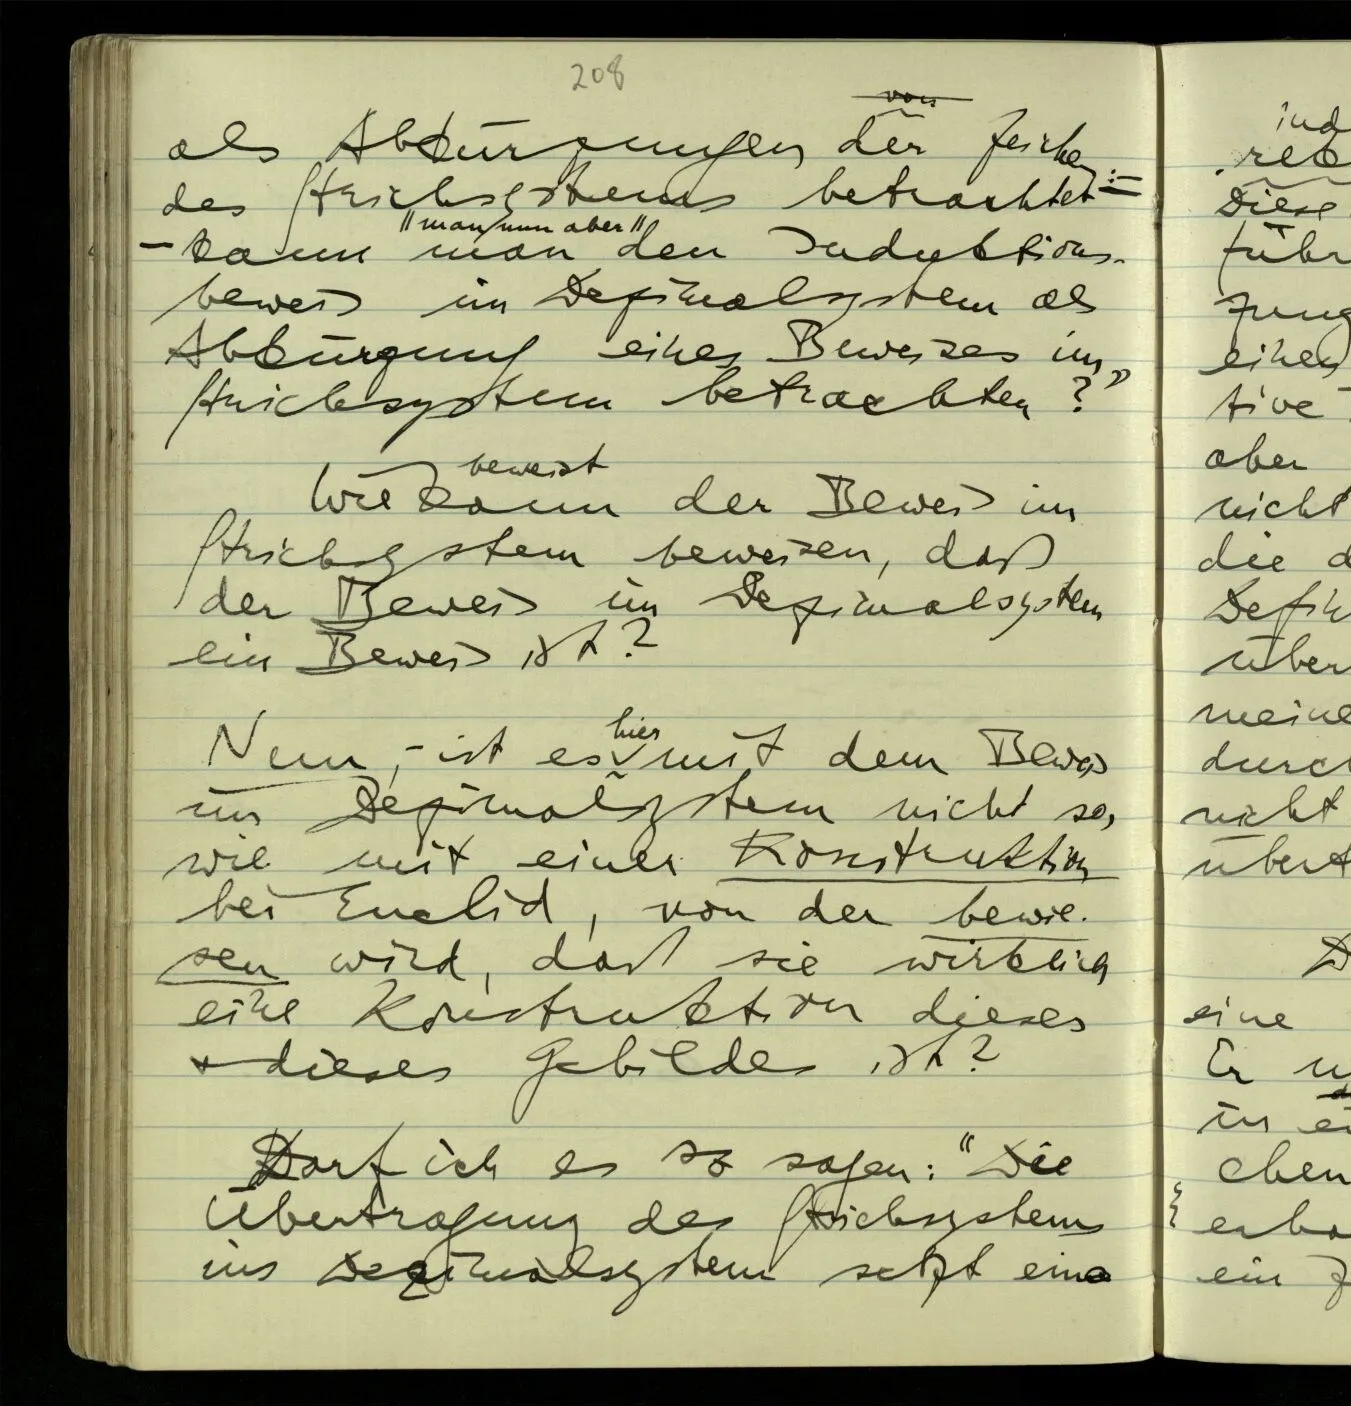 208
von
als Abkürzungen der Zeichen
des Strichsystems betrachtet:–
"man nun aber"
– kann man den Induktions-
beweis im Dezimalsystem als
Abkürzung eines Beweises im
Strichsystem betrachten?"
beweist
Wie kann der Beweis im
Strichsystem beweisen, daß
der Beweis im Dezimalsystem
ein Beweis ist?
hier
Nun, – ist es mit dem Beweis
im Dezimalsystem nicht so,
wie mit einer Konstruktion
bei Euclid, von der bewie-
sen wird, daß sie wirklich
eine Konstruktion dieses
& dieses Gebildes ist?
Darf ich es so sagen: "Die
Übertragung des Strichsystems
ins Dezimalsystem setzt eine
Diese
führ
zung
einen
tive
aber
nicht
die d
Dezim
über
meine
durch
nicht
übert
D
eine
Er
in ei
chen
ein Z